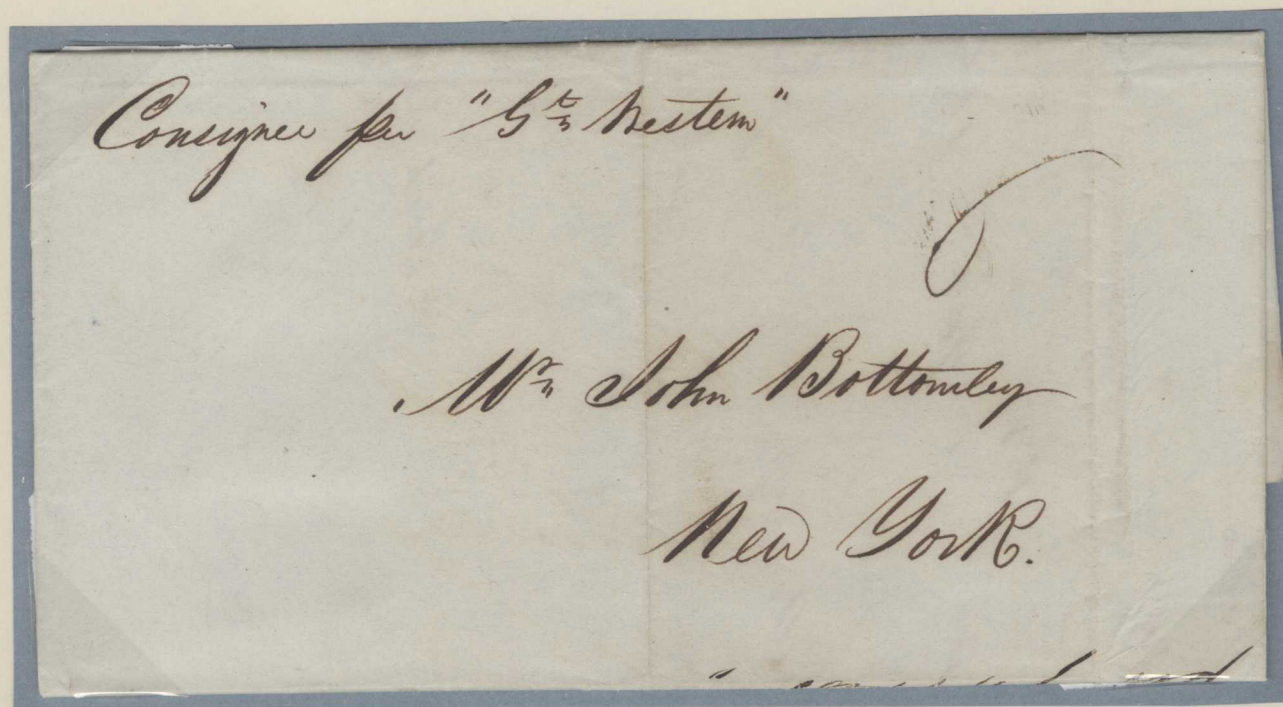 Consignee per "Gt Western"
6
Mr John Bottomley
New York.